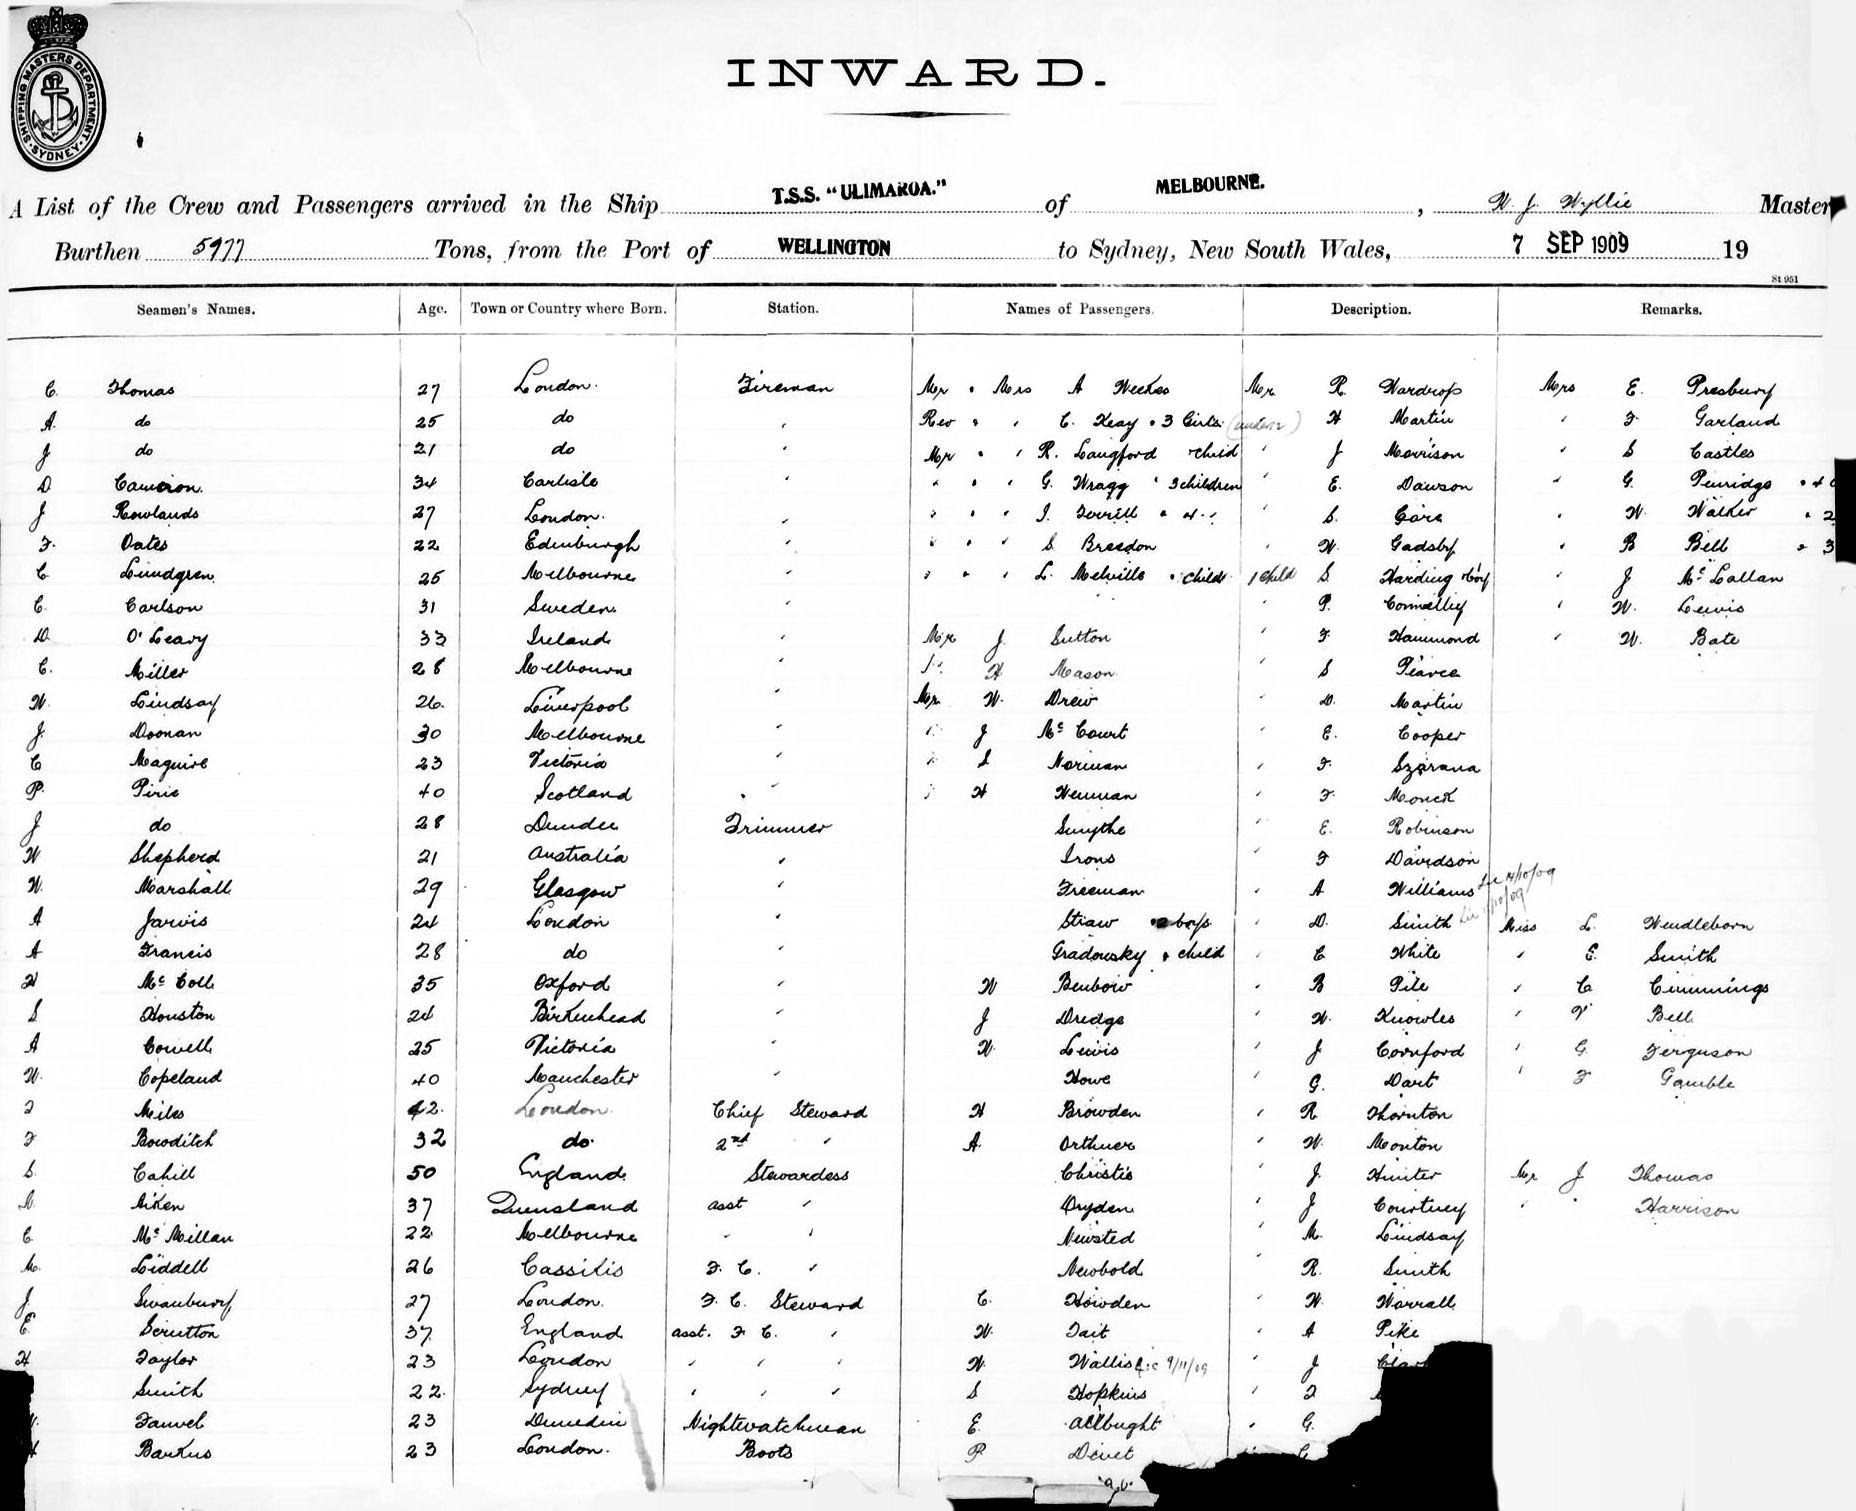 SHIPPING MASTERS DEPARTMENT · SYDNEY ·
INWARD.
A List of the Crew and Passengers arrived in the Ship T.S.S. "ULIMAROA." of MELBOURNE. , W. J. Wyllie Master
Burthen 5977 Tons, from the Port of WELLINGTON to Sydney, New South Wales, 7 SEP 1909 19
St 951
Seamen's Names. Age. Town or Country where Born. Station. Names of Passengers. Description. Remarks.
C. Thomas 27 London. Fireman Mr " Mrs A Weekes Mr R. Wardrop Mrs E. Presbury
A. do 25 do " Rev " " C. Keay " 3 Girls (under 12) H Martin " F Garland
J do 21 do " Mr " " R. Langford " child " J Morrison " S Castles
D Cameron. 34 Carlisle " " " " G. Wragg " 3 children " E. Dawson " G.
J Rowlands 27 London. " " " " J. " 4 " " S. " W. Walker " 2
F. Oates 22 Edinburgh " " " " S. Breedon " W. Gadsby " B Bell " 3
C Lundgren 25 Melbourne " " " " L. Melville " child 1 child S. Harding " boy " J McLallan
C. Carlson 31 Sweden " " P. Connelly " W. Lewis
D. O'Leary 33 Ireland " Mr J. Sutton " F Hammond " W. Bate
C. Miller 28 Melbourne " " H Mason " S Pearce
W. Lindsay 26. Liverpool " Mr W. Drew " D. Martin
J. Doonan 30 Melbourne " " J McCourt " E. Cooper
C Maguire 23 Victoria " " S Norman " F.
P. Pirie 40 Scotland " " H Newman " F. Monck
J do 28 Dundee Trimmer Smythe " E. Robinson
W Shepherd 21 Australia " Irons " F Davidson
W. Marshall 29 Glasgow " Freeman " A Williams
A Jarvis 24 London " Straw " boys " D. Smith Miss L. Wendleborn
A Francis 28 do " Gradowsky " child " C White " E. Smith
H McColl 35 Oxford " W Benbow " B Pile " C Cummings
S Houston 24 Birkenhead " J Dredge " W. Knowles " V Bell
A Cowell 25 Victoria " W. Lewis " J Cornford " G. Ferguson
W. Copeland 40 Manchester " Howe G. Dart " F Gamble
J Miles 42. London. Chief Steward H Browden " R Thornton
F Bowditch 32 do. 2nd " A. " W. Monton
S. Cahill 50 England. Stewardess Christie J. Hunter Mr J Thomas
Aiken 37 Queensland asst " Dryden " J Courtney " " Harrison
C. McMillan 22 Melbourne " " Newsted " M. Lindsay
M. Liddell 26 Cassilis F. C. " Newbold " R. Smith
J. Swanbury 27 London. F. C. Steward C. Howden " W. Worrall
E. Scrutton 37 England asst. F C. " W. Tait " A Pike
H Taylor 23 London " " " W. Wallis Lic 9/11/09 " J
Smith 22. Sydney " " " S Hopkins " J
Fauvel 23 Dunedin Nightwatchman E. Allbught " G.
Barkus 23 London. Boots P Divet C